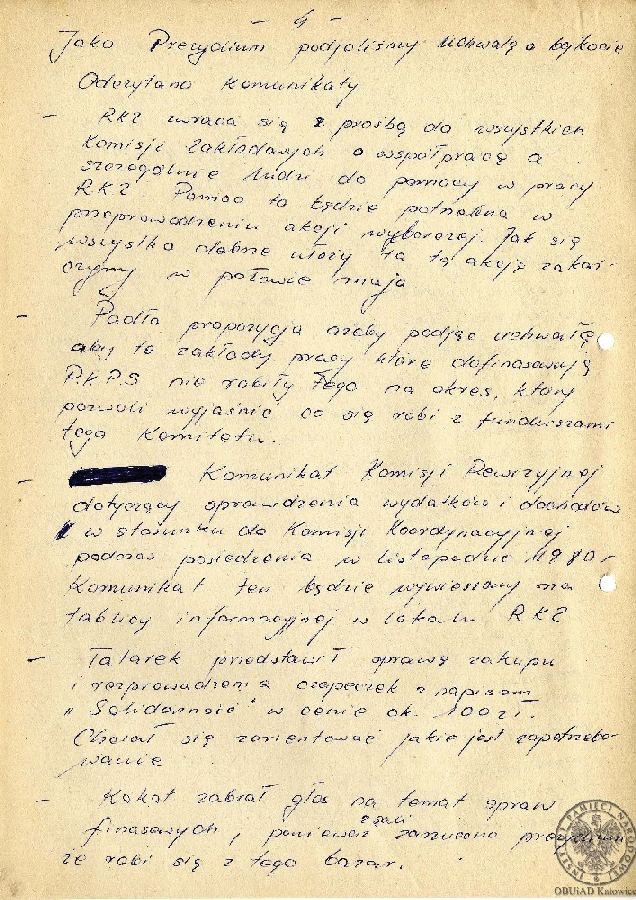 - 4 -
Jako Prezydium podjeliśmy uchwałę o bojkocie
Odczytano komunikaty
- RKZ zwraca się z prośbą do wszystkich
Komisji Zakładowych o współpracę a
szczególnie ludzi do pomocy w pracy
RKZ Pomoc ta będzie potrzebna w
przeprowadzeniu akcji wyborczej. Jak się
wszystko dobrze ułoży to tą akcję zakoń-
czymy w połowie maja
- Padła propozycja ażeby podjąć uchwałę
aby te zakłady pracy które dofinasowują
P.K.P.S nie robiły tego na okres, który
pozwoli wyjaśnić co się robi z funduszami
tego Komitetu.
- Komunikat Komisji Rewizyjnej
dotyczący sprawdzenia wydatków i dochodów
w stosunku do Komisji Koordynacyjnej
podczas posiedzenia w listopadzie 1980r
Komunikat ten będzie wywieszony na
tablicy informacyjnej w lokalu RKZ
- Talarek przedstawił sprawę zakupu
i rozprowadzenia czapeczek z napisem
"Solidarność" w cenie ok. 100 zł.
Chciał się zorientować jakie jest zapotrzebo-
wanie
- Kokot zabrał głos na temat spraw
finasowych, ponieważ zarzucono
że robi się z tego bazar.
OBUiAD Katowice